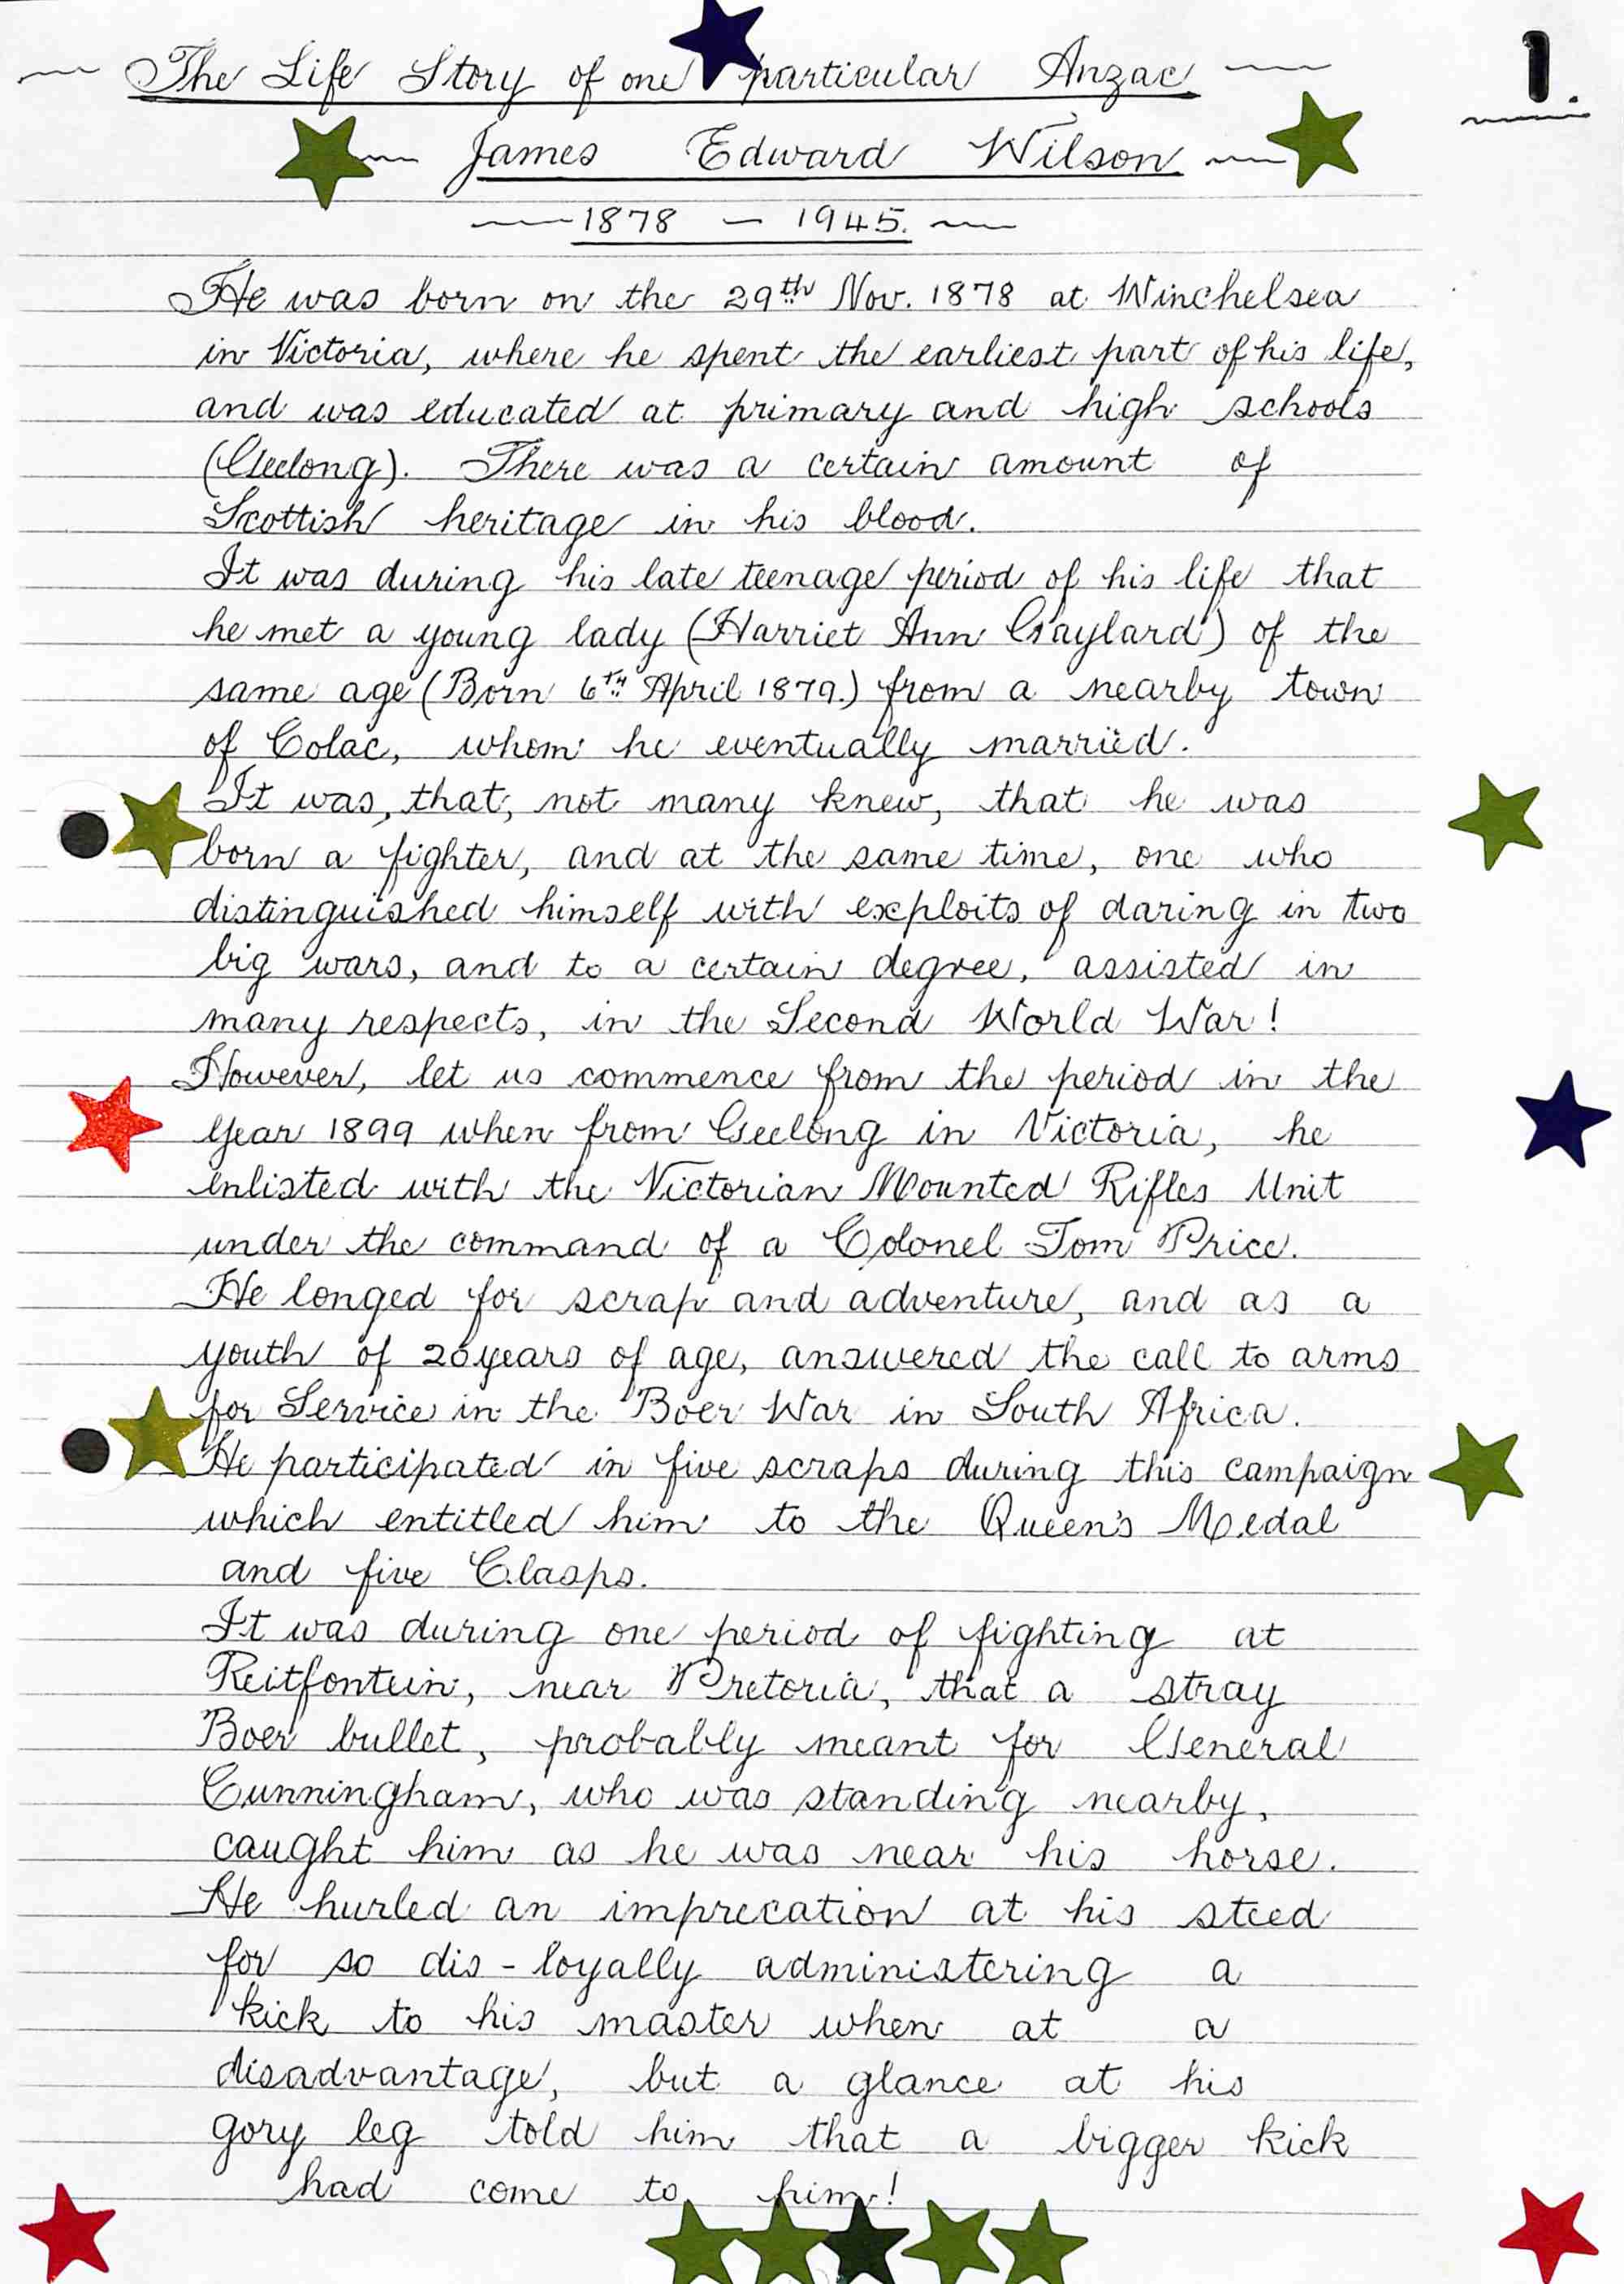 The Life Story of one particular Anzac.
1.
James Edward Wilson
1878 - 1945.
He was born on the 29th Nov. 1878 at Winchelsea
in Victoria, where he spent the earliest part of his life,
and was educated at primary and high schools
(Geelong). There was a certain amount of
Scottish heritage in his blood.
It was during his late teenage period of his life that
he met a young lady (Harriet Ann Gaylard) of the
same age (Born 6TH April 1879.) from a nearby town
of Colac, whom he eventually married.
It was, that, not many knew, that he was
born a fighter, and at the same time, one who
distinguished himself with exploits of daring in two
big wars, and to a certain degree, assisted in
many respects, in the Second World War!
However, let us commence from the period in the
year 1899 when from Geelong in Victoria, he
enlisted with the Victorian Mounted Rifles Unit
under the command of a Colonel Tom Price.
He longed for scrap and adventure, and as a
youth of 20 years of age, answered the call to arms
for Service in the Boer War in South Africa.
He participated in five scraps during this campaign
which entitled him to the Queen's Medal
and five Clasps.
It was during one period of fighting at
Reitfontein, near Pretoria, that a stray
Boer bullet, probably meant for General
Cunningham, who was standing nearby,
caught him as he was near his horse.
He hurled an imprecation at his steed
for so dis-loyally administering a
kick to his master when at a
disadvantage, but a glance at his
gory leg told him that a bigger kick
had come to him!